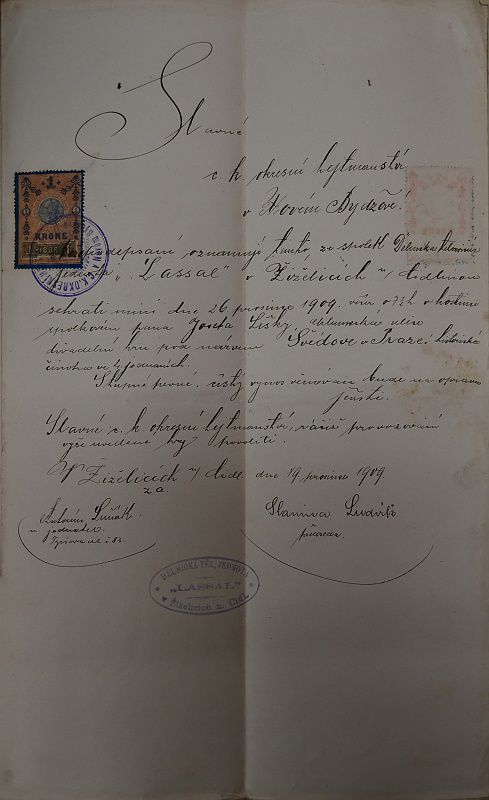 Slavné
c. k. okresní hejtmanství
v Novém Bydžově!
1
KRONE
1898
C. K. OKRESNÍ
podepsaní oznamují tímto, že spolek Dělnická tělocvičná
jednota „Lassal" v Žiželicích n/Cidlinou
sehráti míní dne 26 prosince 1909. več. o 7½ h v hostinci
spolkovém pana Josefa Lišky, Chlumecká ulice
divadelní hru pod názvem Švédové v Praze historická
činohra ve jednáních.
Vstupné pevné, čistý výnos věnován bude na opravu
jeviště.
Slavné c. k. okresní hejtmanství, račiž provozování
výše uvedené hry povoliti.
V Žiželicích n/Cidl. dne 19 prosince 1909.
za
Antonín
jednatel.
Slanina Ludvík
předseda
DĚLNICKÁ TĚL. JEDNOTA
„LASSAL"
v Žiželicích n. Cidl.